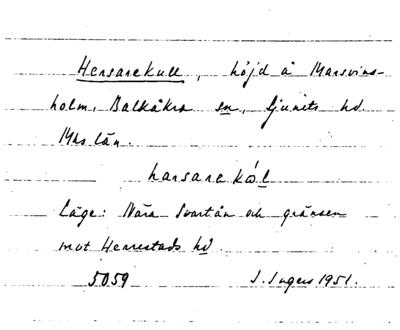 Hersarekull, höjd å Marsvins-
holm, Balkåkra sn, Ljunits hd.
Mhs län.
harsarekål
Läge: Nära Svartån och gränsen
mot Herrestads hd.
5059 I. Ingers 1951.